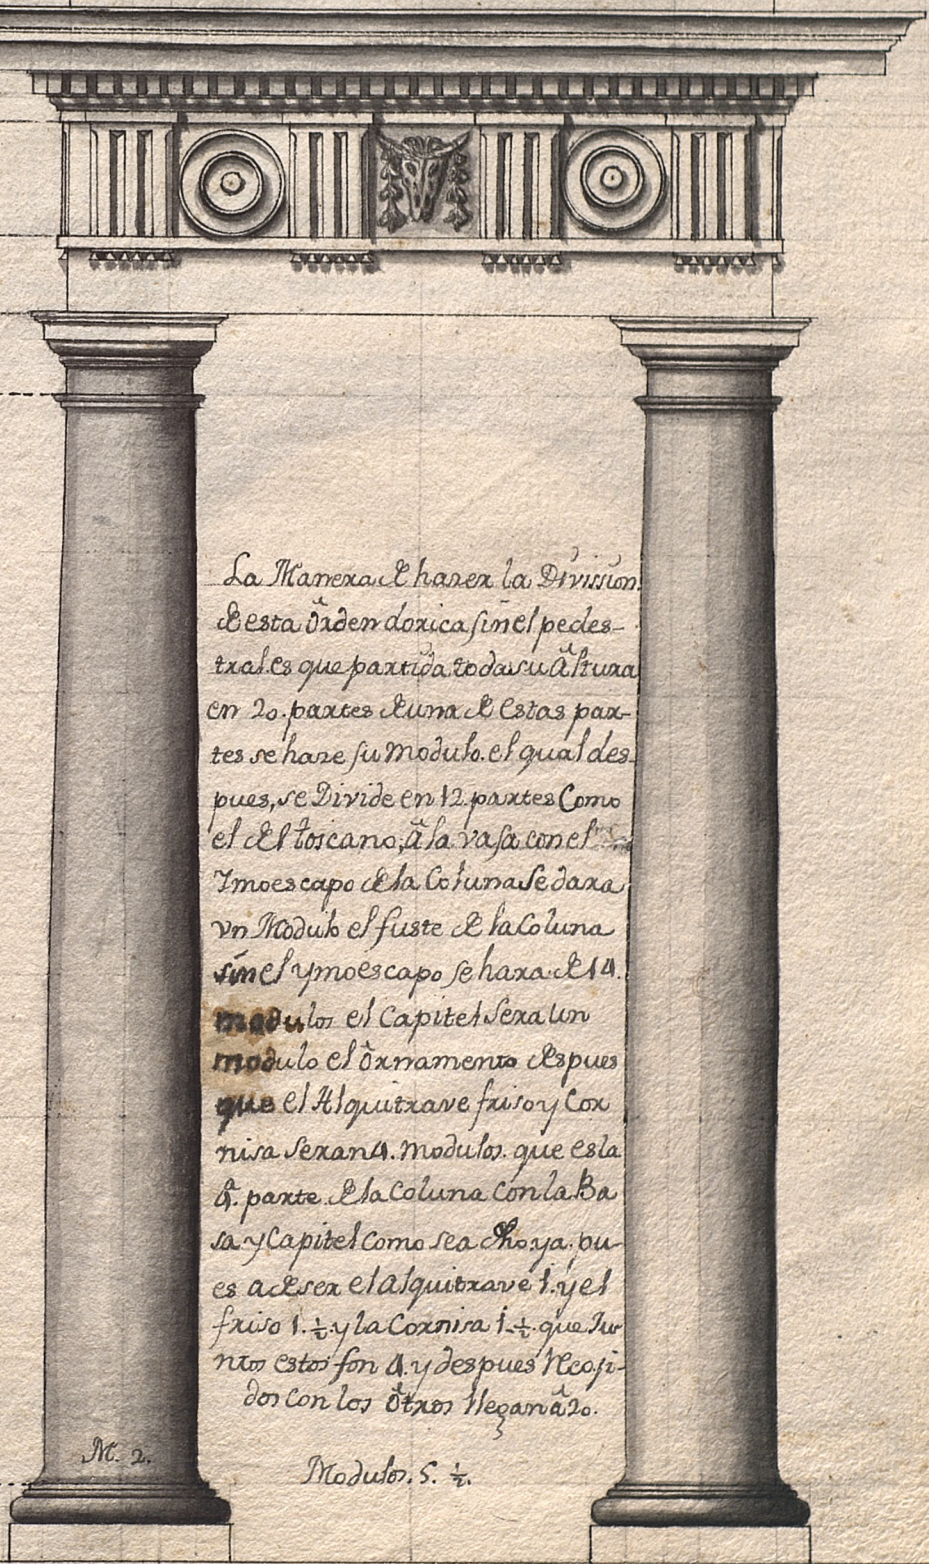 La Manera de hazer la Divission
de esta Orden dorica sin el pedes-
tral es que partida toda su Altura
en 20. partes de una de estas par-
tes se haze su Modulo. el qual des-
pues, se Divide en 12 partes Como
el del toscano, â la vasa con el
Ymoescapo de la Coluna Se dara
vn Modulo el fuste de la Coluna
sin el ymoescapo se hara de 14.
modulos el Capitel Sera un
modulo el Ornamento despues
que el Alquitrave friso y Cor
nisa Seran 4. modulos. que es la
4ª. parte de la Coluna Con la Ba
sa y Capitel Como sea dho ya, pu-
es a de ser el alquitrave 1. y el
friso 1. ½. y la Cornisa 1. ½. que Ju
ntos estos son 4. y despues Recoji-
dos con los Otros llegan â 20.
M. 2.
Modulos. 5. ½.